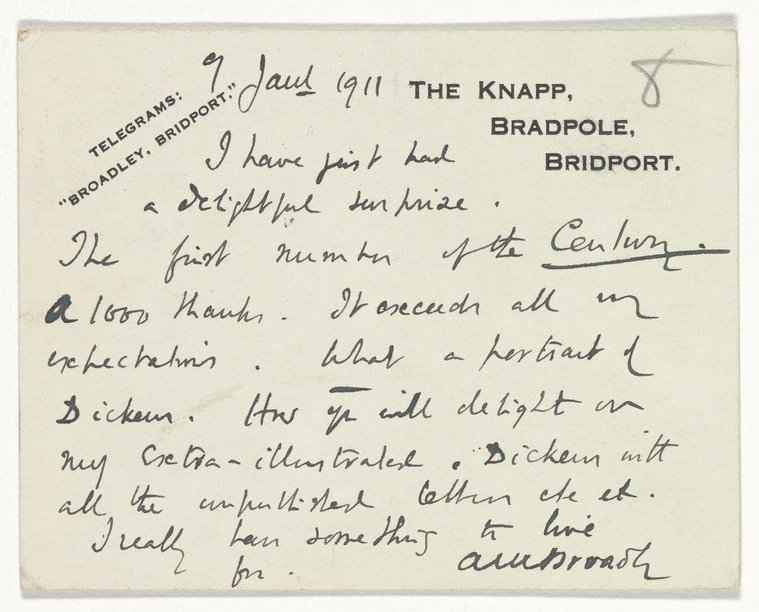 TELEGRAMS:
"BROADLEY, BRIDPORT."
9 Jany 1911
THE KNAPP,
BRADPOLE,
BRIDPORT.
8
I have just had
a delightful surprise.
The first number of the Century.
A 1000 thanks. It exceeds all my
expectations. What a portrait of
Dickens. How you will delight in
my extra-illustrated. Dickens with
all the unpublished letters etc etc.
I really have something to live
for. AMBroadley